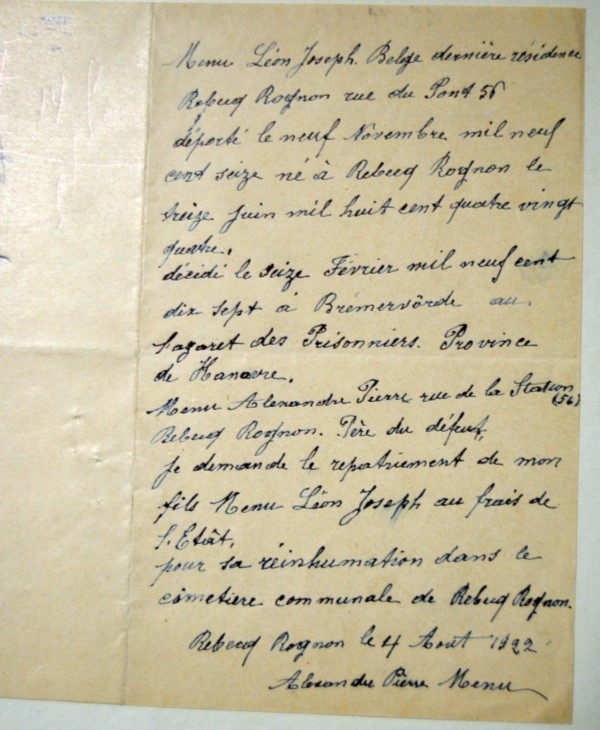 Menu Léon Joseph. Belge dernière résidence
Rebecq Rognon rue du Pont 56
déporté le neuf Novembre mil neuf
cent seize né à Rebecq Rognon le
treize juin mil huit cent quatre vingt
quatre.
décidé le seize Février mil neuf cent
dix sept à Brémervörde au
Lazaret des Prisonniers. Province
de Hanovre.
Menu Alexandre Pierre rue de la Station
(56)
Rebecq Rognon. Père du défunt,
je demande le repatriement de mon
fils Menu Léon Joseph au frais de
l'Etât,
pour sa réinhumation dans le
cimetière communale de Rebecq Rognon.
Rebecq Rognon le 4 Aout 1922
Alexandre Pierre Menu